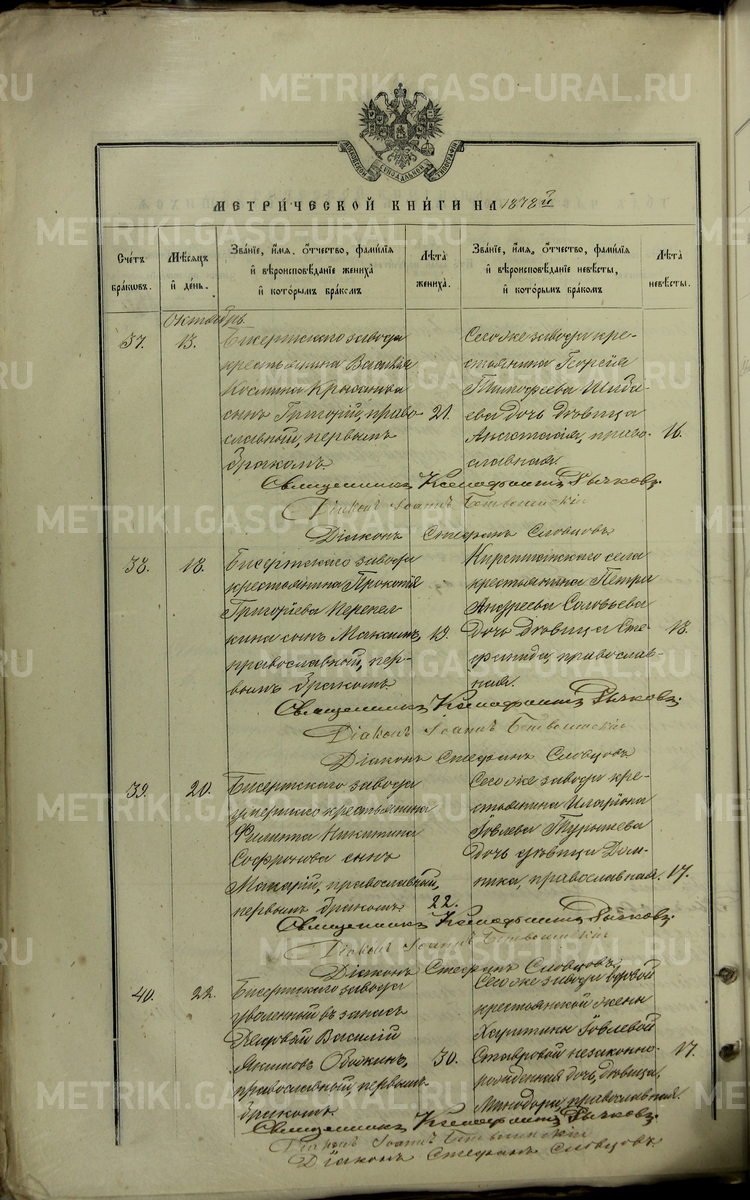 METRIKI.GASO-URAL.RU
МОСКОВСКОЙ СѴНОДАЛЬНОЙ ТИПОГРАФІИ
МЕТРИ́ЧЕСКОЙ КНИ́ГИ НА 1878й
Сче́тъ бра́кѡвъ.
Мѣ́сяцъ й де́нь.
Зва́нїе, и́мя, ѻ́тчество, фами́лїя й вѣроисповѣ́данїе жениха̀ й кото́рымъ бра́комъ
Лѣ́та жениха̀.
Зва́нїе, и́мя, ѻ́тчество, фами́лїя й вѣроисповѣ́данїе невѣ́сты, й кото́рымъ бра́комъ
Лѣ́та невѣ́сты.
Октябрь
37. 13.
Бисертскаго завода
крестьянина Василія
Космина
сынъ Григорій, право-
славный, первымъ
бракомъ.
21.
Сего же завода кре-
стьянина Георгія
Тимофеева
дочь девица
Анастасія, право-
славная.
16.
Священникъ Ксенофонтъ Рычковъ.
Діаконъ Іоаннъ
Діаконъ Стефанъ Словцовъ
38. 18.
Бисертскаго завода
крестьянина Прокопія
Григоріева Перепел
кина сынъ Максимъ,
православный, пер-
вымъ бракомъ.
19.
села
крестьянина Петра
Андреева Соловьева
дочь девица Сте-
фанида, православ-
ная.
18.
Священникъ Ксенофонтъ Рычковъ.
Діаконъ Іоаннъ
Діаконъ Стефанъ Словцовъ
39. 20.
Бисертскаго завода
умершаго крестьянина
Филиппа Никитина
Софронова сынъ
Макарій, православный,
первымъ бракомъ.
22.
Сего же завода кре-
стьянина Иларіона
Іовлева Турышева
дочь девица Дом-
ника, православная.
17.
Священникъ Ксенофонтъ Рычковъ.
Діаконъ Іоаннъ
Діаконъ Стефанъ Словцовъ
40. 22.
Бисертскаго завода
уволенный въ запасъ
рядовой Василій
Акимовъ
православный, первымъ
бракомъ
30.
Сего же завода вдовой
крестьянской жены
Харитины Іовлевой
незаконно-
рожденная дочь, девица,
Минодора, православная.
17.
Священникъ Ксенофонтъ Рычковъ.
Діаконъ Іоаннъ
Діаконъ Стефанъ Словцовъ.